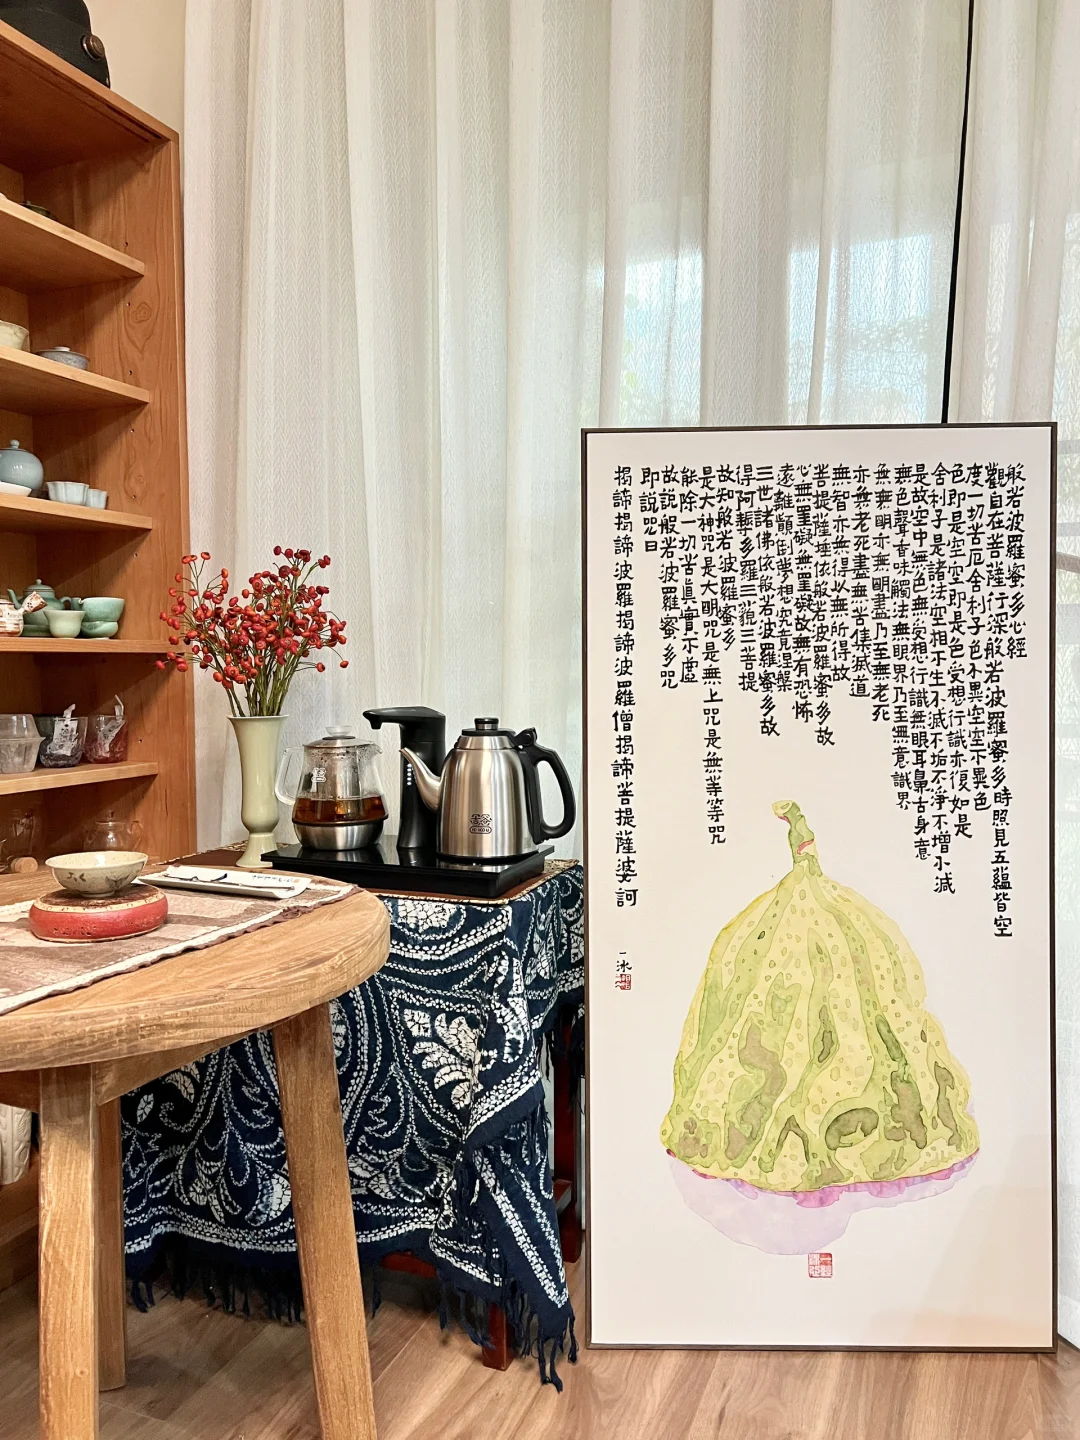 般若波羅蜜多心經
觀自在菩薩行深般若波羅蜜多時照見五蘊皆空
度一切苦厄舍利子色不異空空不異色
色即是空空即是色受想行識亦復如是
舍利子是諸法空相不生不滅不垢不淨不增不減
是故空中無色無受想行識無眼耳鼻舌身意
無色聲香味觸法無眼界乃至無意識界
無無明亦無明盡乃至無老死
亦無老死盡無苦集滅道
無智亦無得以無所得故
菩提薩埵依般若波羅蜜多故
心無罣礙無罣礙故無有恐怖
遠離顛倒夢想究竟涅槃
三世諸佛依般若波羅蜜多故
得阿耨多羅三藐三菩提
故知般若波羅蜜多
是大神咒是大明咒是無上咒是無等等咒
能除一切苦真實不虛
故說般若波羅蜜多咒
即說咒曰
揭諦揭諦波羅揭諦波羅僧揭諦菩提薩婆訶
一冰